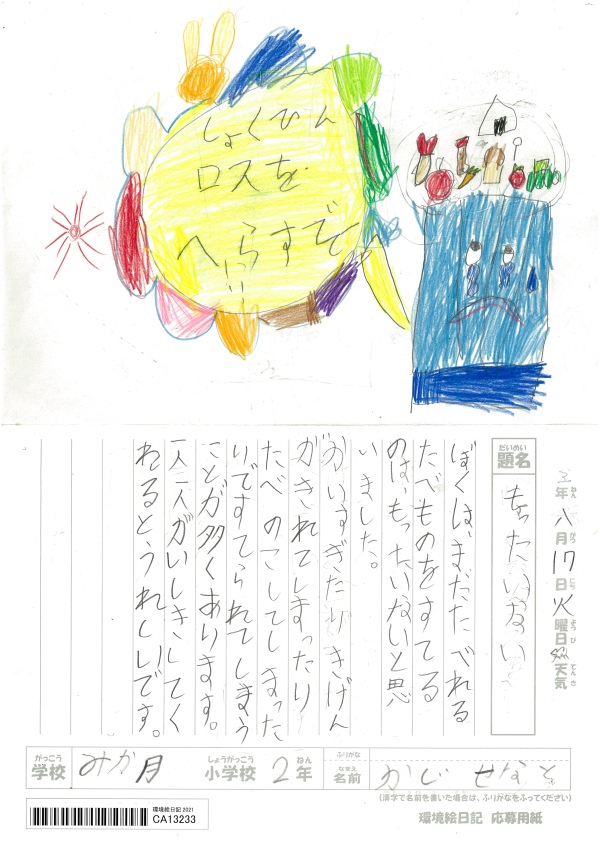 しょくひん
ロスを
へらすぞ
!!!
3年八月17日火曜日 天気
ねん がつ にち ようび てんき
だいめい
題名 もったいない
ぼくは、まだたべれる
たべものをすてる
のは、もったいないと思
いました。
かいすぎたりきげん
がきれてしまったり
たべのこしてしまった
りですてられてしまう
ことが多くあります。
一人一人がいしきしてく
れるとうれしいです。
がっこう しょうがっこう ねん ふりがな
学校 みか月 小学校 2年 名前 かじ せなと
なまえ
(漢字で名前を書いた場合は、ふりがなをふってください)
環境絵日記 2021
CA13233
環境絵日記 応募用紙